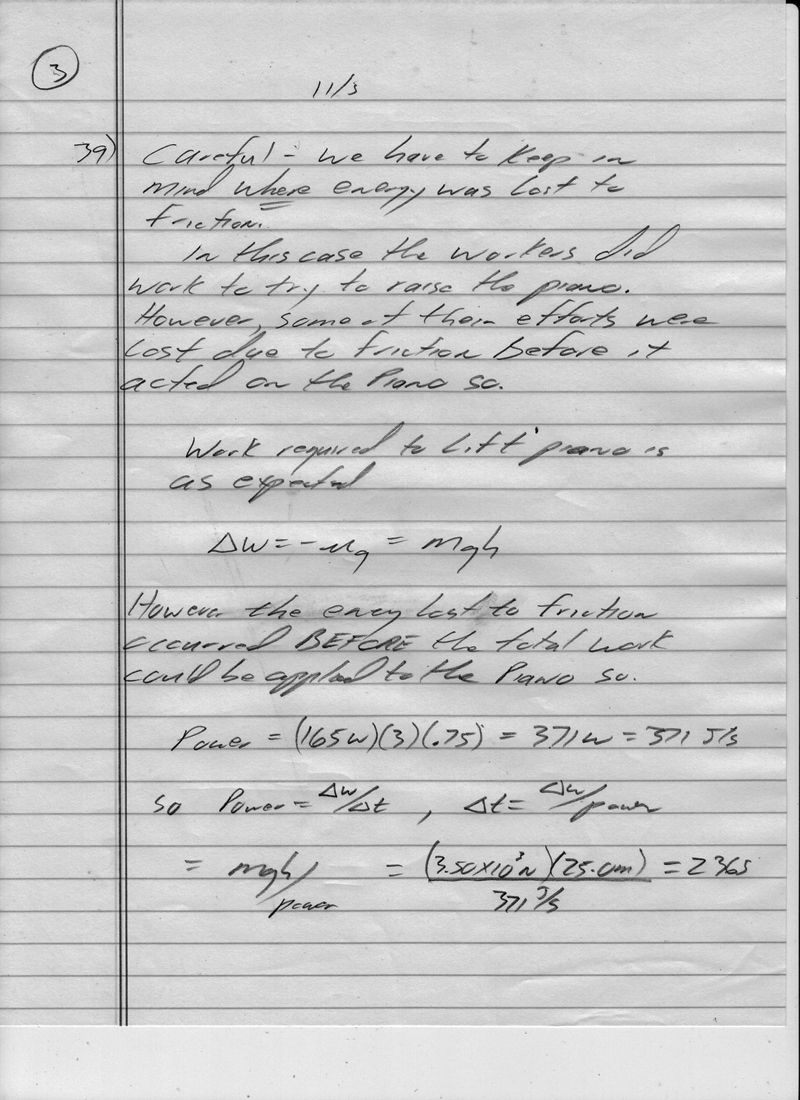 3
11/3
39) Careful - we have to keep in
mind where energy was lost to
friction.
In this case the workers did
work to try to raise the piano.
However, some of their efforts were
lost due to friction before it
acted on the Piano so.
Work required to Lift piano is
as expected
ΔW = -Ug = mgh
However the energy lost to friction
occurred BEFORE the total work
could be applied to the Piano so.
Power = (165w)(3)(.75) = 371w = 371 J/s
so Power = ΔW/Δt , Δt = ΔW/power
= mgh/power = (3.50x10³N)(25.0m)/371 J/s = 236s